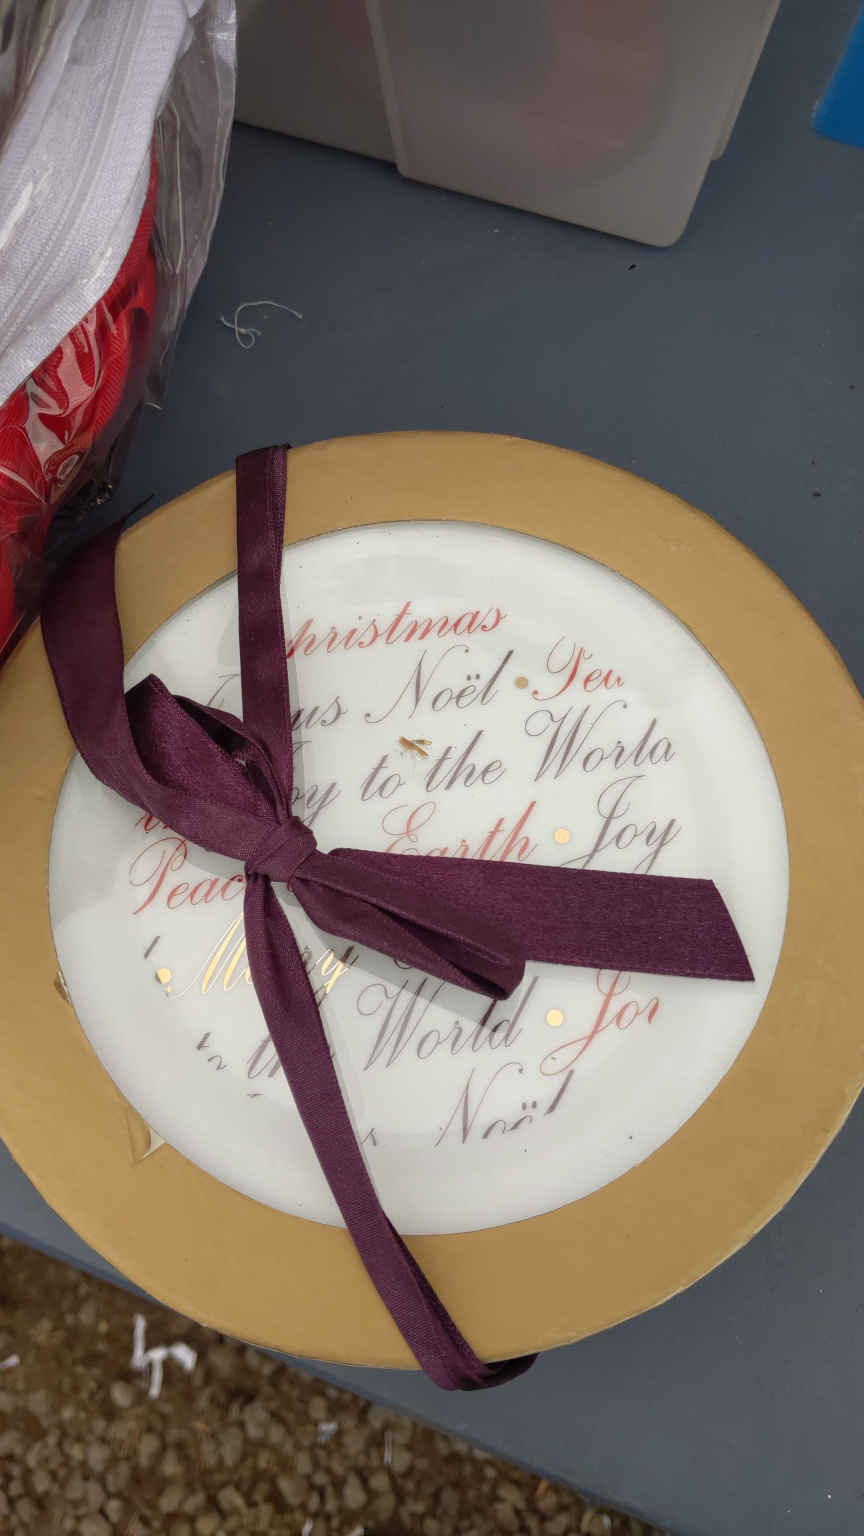 hristmas
us Noël • Pea
oy to the World
Earth • Joy
Peac
• Merry
the World • Joy
Noël